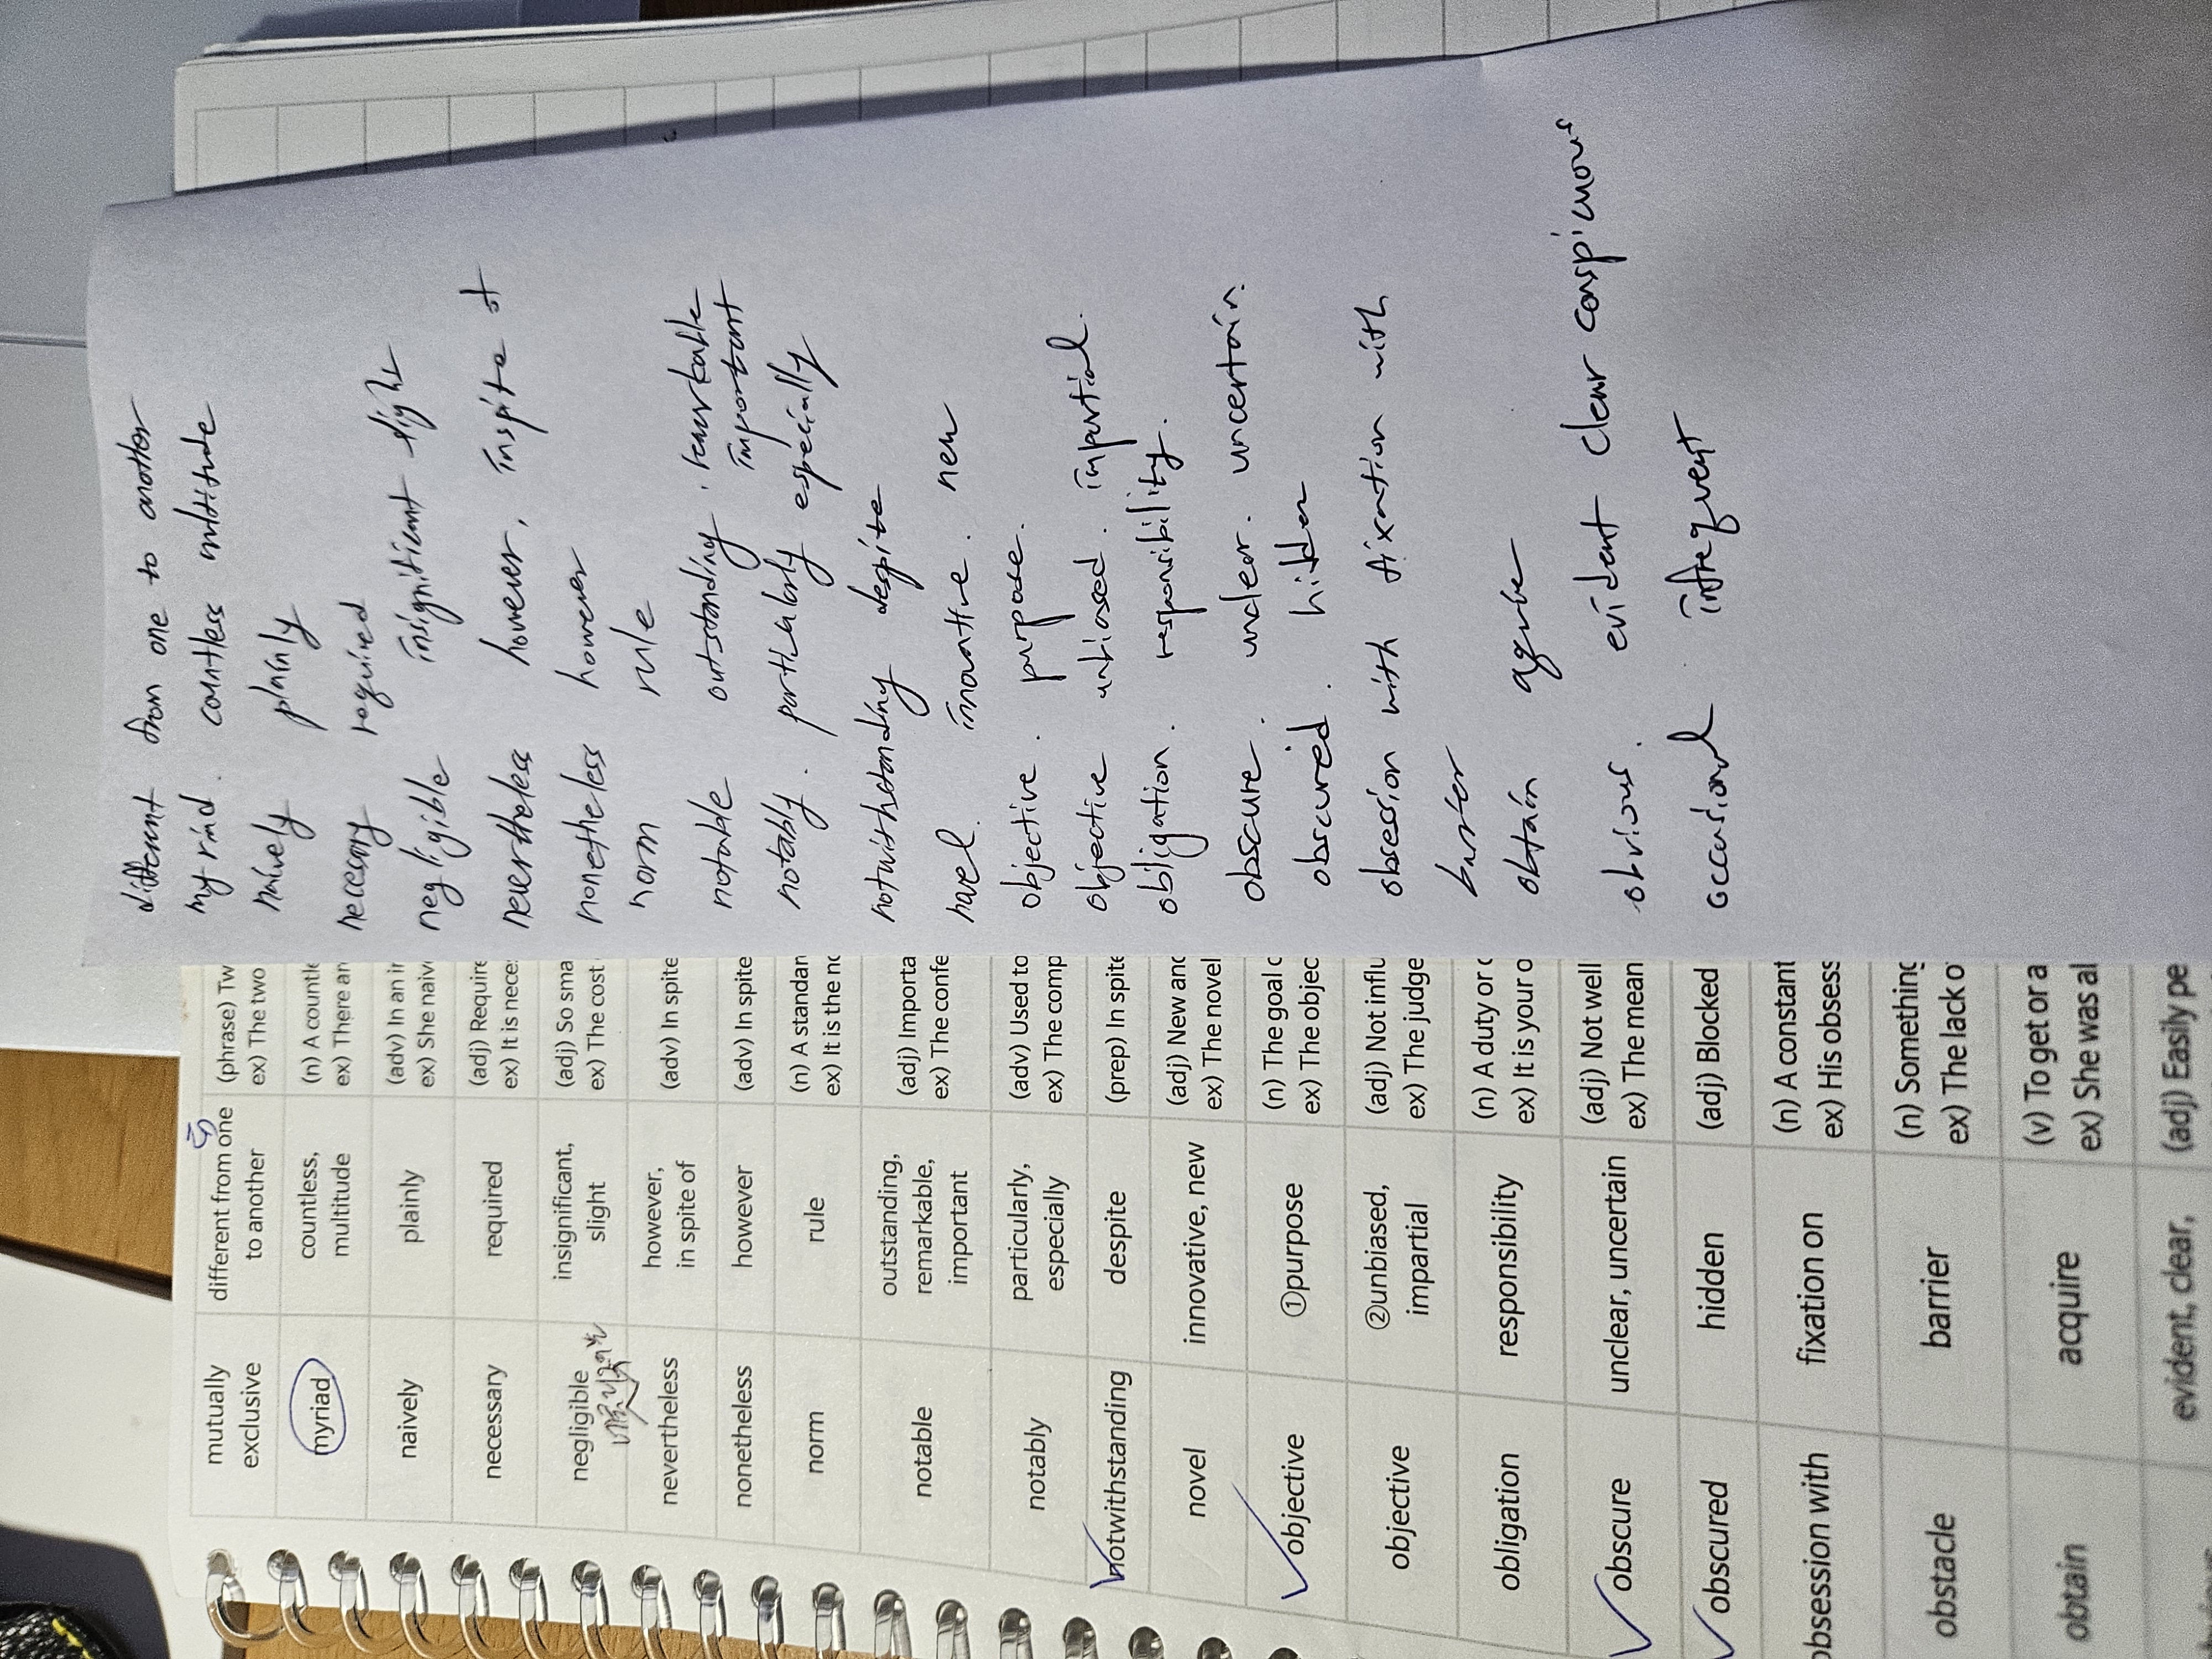 mutually
exclusive
different from one
to another
(phrase) Tw
ex) The two
myriad
countless,
multitude
(n) A countle
ex) There ar
naively
plainly
(adv) In an ir
ex) She naiv
necessary
required
(adj) Require
ex) It is neces
negligible
insignificant,
slight
(adj) So sma
ex) The cost
nevertheless
however,
in spite of
(adv) In spite
nonetheless
however
(adv) In spite
norm
rule
(n) A standar
ex) It is the no
notable
outstanding,
remarkable,
important
(adj) Importa
ex) The confe
notably
particularly,
especially
(adv) Used to
ex) The comp
notwithstanding
despite
(prep) In spite
novel
innovative, new
(adj) New and
ex) The novel
objective
①purpose
(n) The goal o
ex) The objec
objective
②unbiased,
impartial
(adj) Not influ
ex) The judge
obligation
responsibility
(n) A duty or c
ex) It is your o
obscure
unclear, uncertain
(adj) Not well
ex) The mean
obscured
hidden
(adj) Blocked
obsession with
fixation on
(n) A constant
ex) His obsess
obstacle
barrier
(n) Something
ex) The lack o
obtain
acquire
(v) To get or a
ex) She was al
evident, clear,
(adj) Easily pe
different from one to another
myriad. countless multitude
naively plainly
necessary required
negligible insignificant slight
nevertheless however, inspite of
nonetheless however
norm rule
notable outstanding, remarkable
important
notably. particularly especially
notwithstanding despite
novel. innovative. new
objective. purpose.
objective unbiased. impartial.
obligation. responsibility.
obscure. unclear. uncertain.
obscured. hidden
obsession with fixation with
barrier
obtain
obvious. evident clear conspicuous
occasional. infrequent